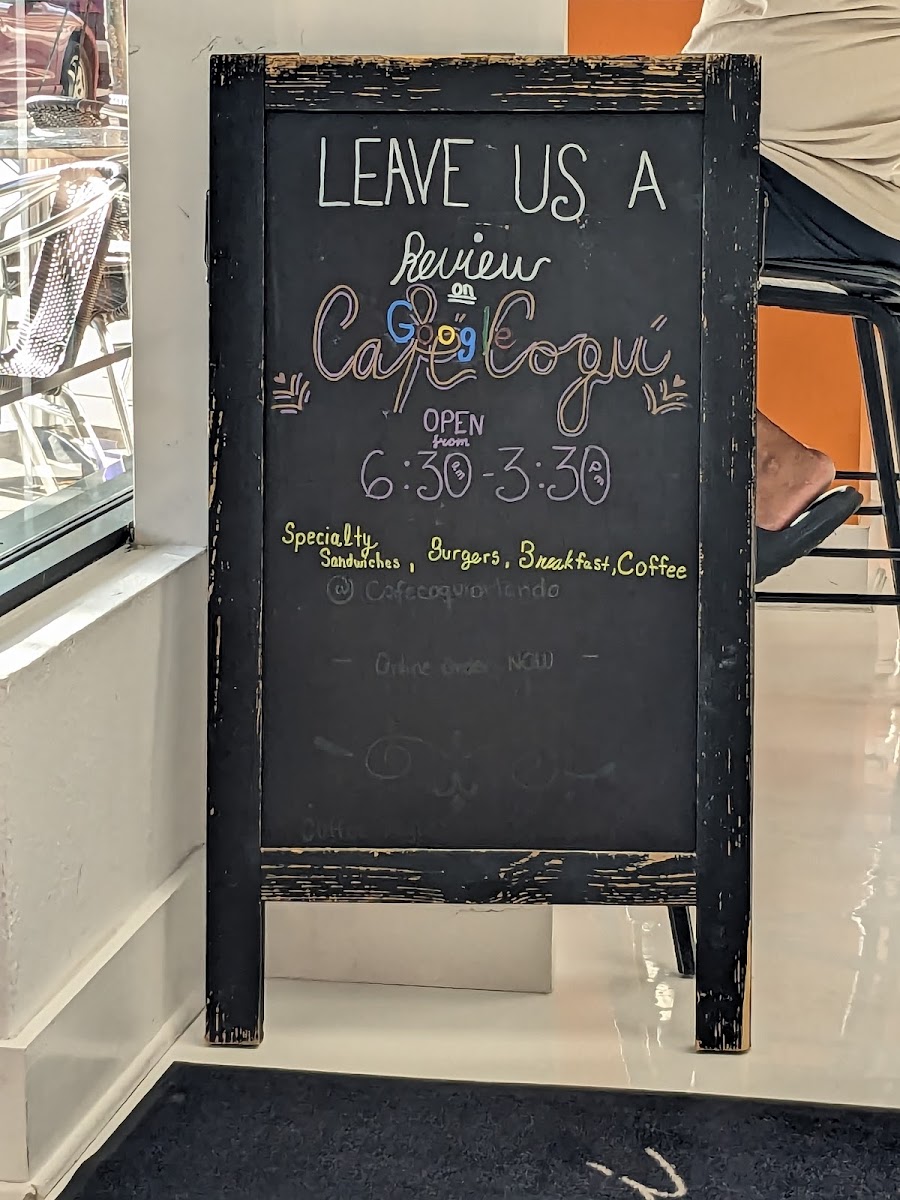 LEAVE US A
Review
on
Google
Café Coquí
OPEN
from
6:30 - 3:30 pm
Specialty
Sandwiches, Burgers, Breakfast, Coffee
@ Cafecoquiorlando
- Online order NOW -
Coffee